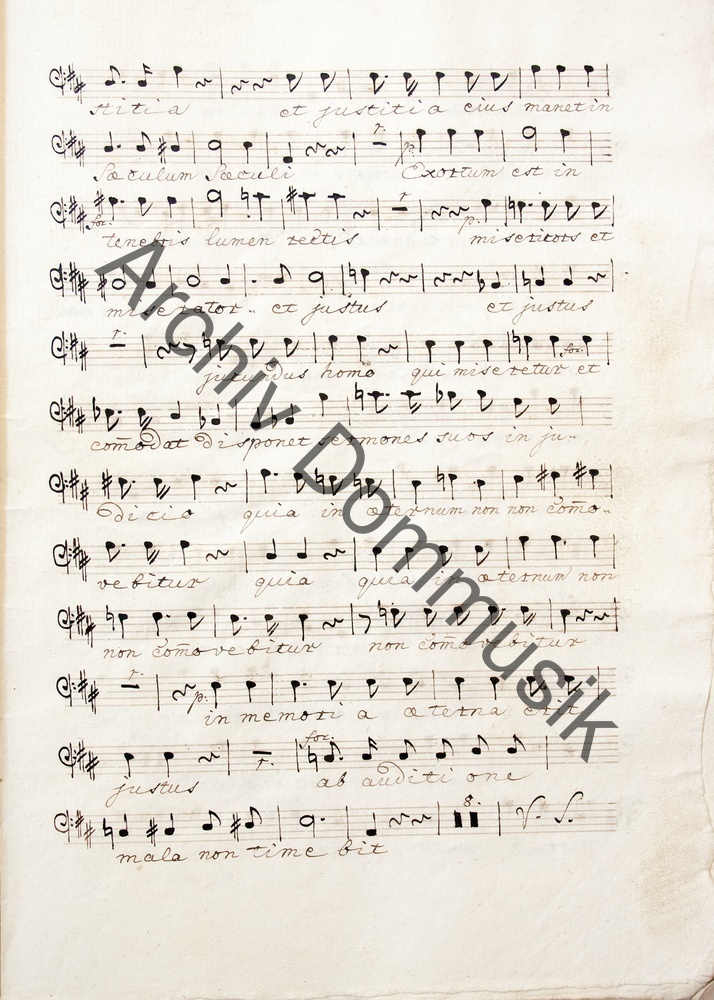 stitia et justitia eius manet in
r.
Sæculum Sæculi Exortum est in
p.
for. r p.
tenebris lumen rectis misericors et
miserator et justus et justus
r. for.
jucundus homo qui miseretur et
com̄odat disponet sermones suos in ju..
dicio quia in æternum non non com̄o..
vebitur quia quia in æternum non
non com̄ovebitur non com̄ovebitur
r. p.
in memoria æterna erit
r. for.
justus ab auditione
8. V. S.
mala non timebit
Archiv Dommusik